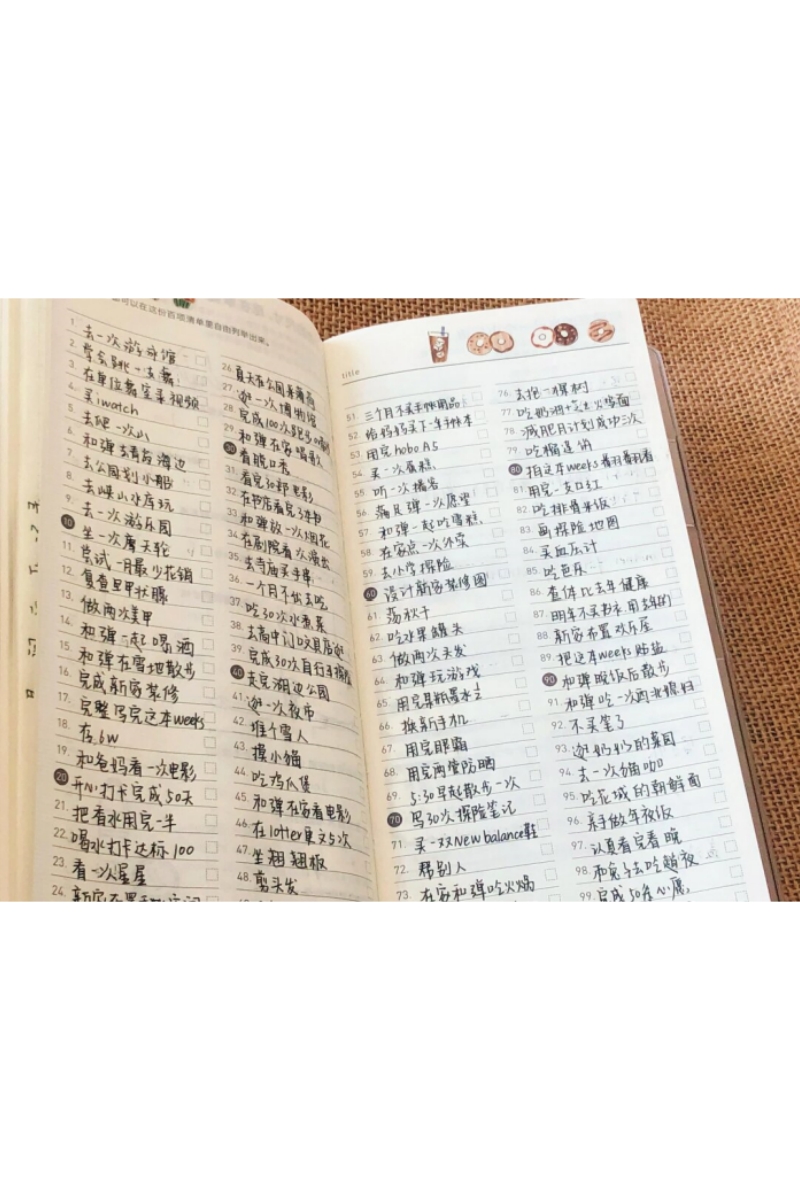 可以在这份百项清单里自由列举出来。
1. 去一次游泳馆
2. 学会跳一支舞
3. 在单位舞室录视频
4. 买iwatch
5. 去爬一次山
6. 和弹去青岛海边
7. 去公园划小船
8. 去峡山水库玩
9. 去一次游乐园
10 坐一次摩天轮
11. 尝试一月最少花销
12. 复查甲状腺
13. 做两次美甲
14. 和弹一起喝酒
15. 和弹在雪地散步
16. 完成新家装修
17. 完整写完这本weeks
18. 存6w
19. 和爸妈看一次电影
20 开心打卡完成50天
21. 把香水用完一半
22. 喝水打卡达标100
23. 看一次星星
24.
26. 夏天在公园
27. 逛一次博物馆
28. 完成100次跑步
29. 和弹在家喝
30 看脱口秀
31. 看完30部电影
32. 在书店看完3本书
33. 和弹放一次烟花
34. 在剧院看次演出
35. 去寺庙买手串
36. 一个月不出去吃
37. 吃30次水煮菜
38. 去高中门口文具店逛
39. 完成30次自行车探险
40 去完湖边公园
41. 逛一次夜市
42. 堆个雪人
43. 摸小猫
44. 吃鸡爪煲
45. 和弹在家看电影
46. 在lofter更文5次
47. 坐翘翘板
48. 剪头发
title
51. 三个月不买手帐用品
52. 给妈妈买下一年手帐本
53. 用完hobo A5
54. 买一次蛋糕
55. 听一次播客
56. 满足弹一次愿望
57. 和弹一起吃雪糕
58. 在家点一次外卖
59. 去小学探险
60 设计新家装修图
61. 荡秋千
62. 吃水果罐头
63. 做两次头发
64. 和弹玩游戏
65. 用完某瓶墨水½
66. 换新手机
67. 用完眼霜
68. 用完两管防晒
69. 5:30早起散步一次
70 写30次探险笔记
71. 买一双New balance鞋
72. 帮别人
73. 在家和弹吃火锅
76. 去抱一棵树
77. 吃奶油+芝士火鸡面
78. 减肥月计划成功三次
79. 吃榴莲饼
80 拍这本weeks翻翻看
81. 用完一支口红
82. 吃排骨米饭
83. 画探险地图
84. 买血压计
85. 吃芭乐
86. 查体比去年健康
87. 明年不买书衣用去年的
88. 新家布置欢乐屋
89. 把这本weeks贴盐
90 和弹晚饭后散步
91. 和弹吃一次西北媳妇
92. 不买笔了
93. 逛奶奶的菜园
94. 去一次猫咖
95. 吃花城的朝鲜面
96. 亲手做年夜饭
97. 认真看完春晚
98. 和兔子去吃趟夜
99. 完成50条心愿